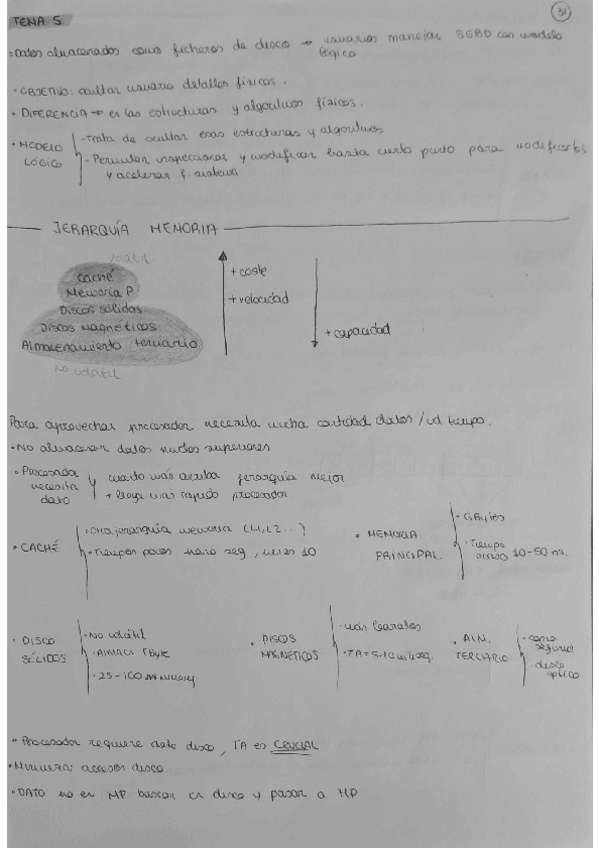 TEMA 5
31
• Datos almacenados como ficheros de disco → usuarios manejar SGBD con modelo
lógico
• OBJETIVO: ocultar usuario detalles físicos.
• DIFERENCIA → en las estructuras y algoritmos físicos.
• MODELO LÓGICO
- Trata de ocultar esas estructuras y algoritmos
- Permiten inspeccionar y modificar hasta cierto punto para modificarlos
y acelerar f. sistema
JERARQUÍA MEMORIA
Volátil
Caché
Memoria P.
Discos sólidos
Discos Magnéticos
Almacenamiento terciario
No volátil
+ coste
+ velocidad
+ capacidad
Para aprovechar procesador necesita mucha cantidad datos / ud tiempo.
• No almacenar datos niveles superiores
• Procesador necesita dato
y cuanto más arriba jerarquía mejor
+ llega más rápido procesador
• CACHÉ
· Otra jerarquía memoria (L1, L2...)
· Tiempos pocos nano seg, unos 10
• MEMORIA PRINCIPAL
- GBytes
· Tiempo acceso 10-50 ns.
• DISCO SÓLIDOS
· No volátil
· Almac. TByte
· 25-100
• DISCOS MAGNÉTICOS
- más baratos
· TA = 5-10 miliseg.
• ALM. TERCIARIO
- copia segurid.
· disco óptico
• Procesador requiere dato disco, TA es CRUCIAL
• Minimizar accesos disco
• DATO no en MP buscar en disco y pasar a MP